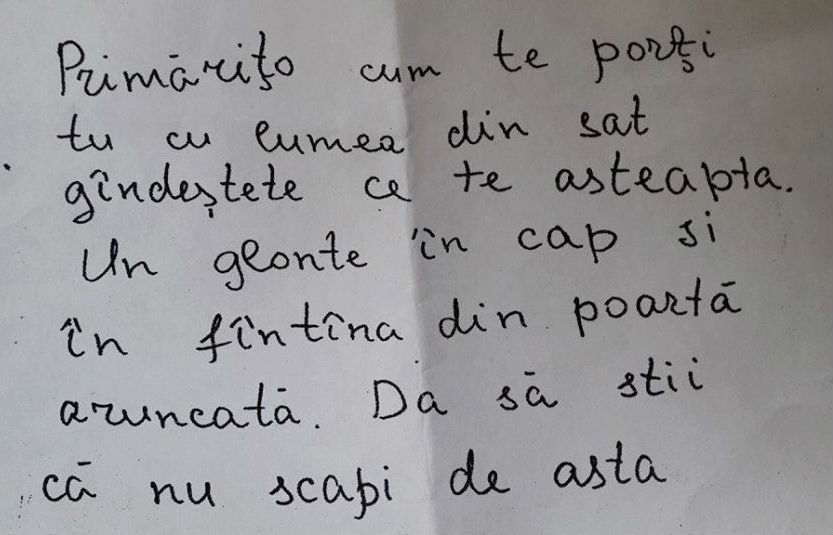 Primărițo cum te porți
tu cu lumea din sat
gîndeștete ce te asteapta.
Un glonte în cap si
în fîntîna din poartă
aruncată. Da să stii
că nu scapi de asta